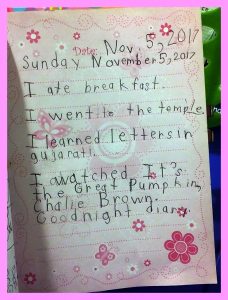 Date: Nov 5, 2017
Sunday November 5, 2017
I ate breakfast.
I went to the temple.
I learned letters in
gujarati.
I watched It's
the Great Pumpkin,
Chalie Brown.
Goodnight diary